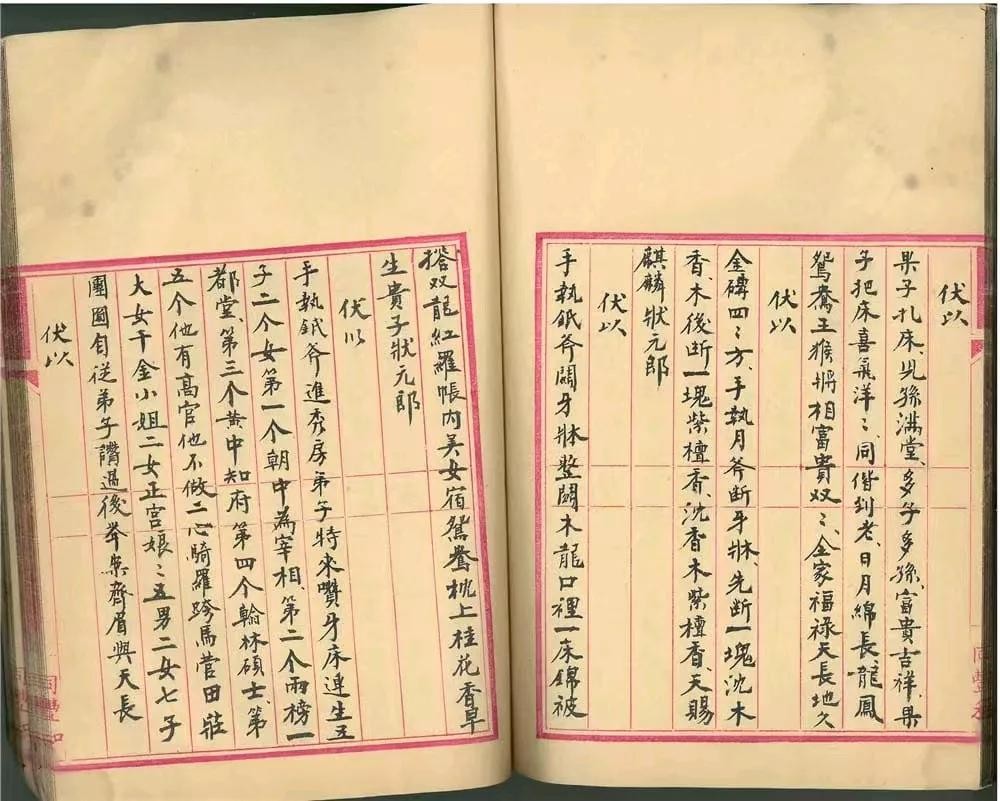 伏以
果子扎床、児孫滿堂、多子多孫、富貴吉祥、果
子把床喜氣洋〻、同偕到老、日月綿長、龍鳳
鴛鴦王猴將相富貴双〻、全家福禄天長地久
伏以
金磚四〻方、手執月斧断牙牀、先断一塊沈木
香、木後断一塊紫檀香、沈香木紫檀香、天賜
麒麟狀元郎
伏以
手執鉞斧闘牙牀整闘木龍口裡一床錦被
搭双龍紅羅帳内美女宿鴛鴦枕上桂花香早
生貴子狀元郎
伏以
手執鉞斧進秀房弟子特來嚽牙床連生五
子二个女第一个朝中為宰相、第二个兩榜一
都堂、第三个黄中知府第四个翰林碩士、第
五个他有高官他不做二心騎羅跨馬营田莊
大女千金小姐二女正宮娘〻五男二女七子
團圓自從弟子讚過後举案齊眉與天長
伏以